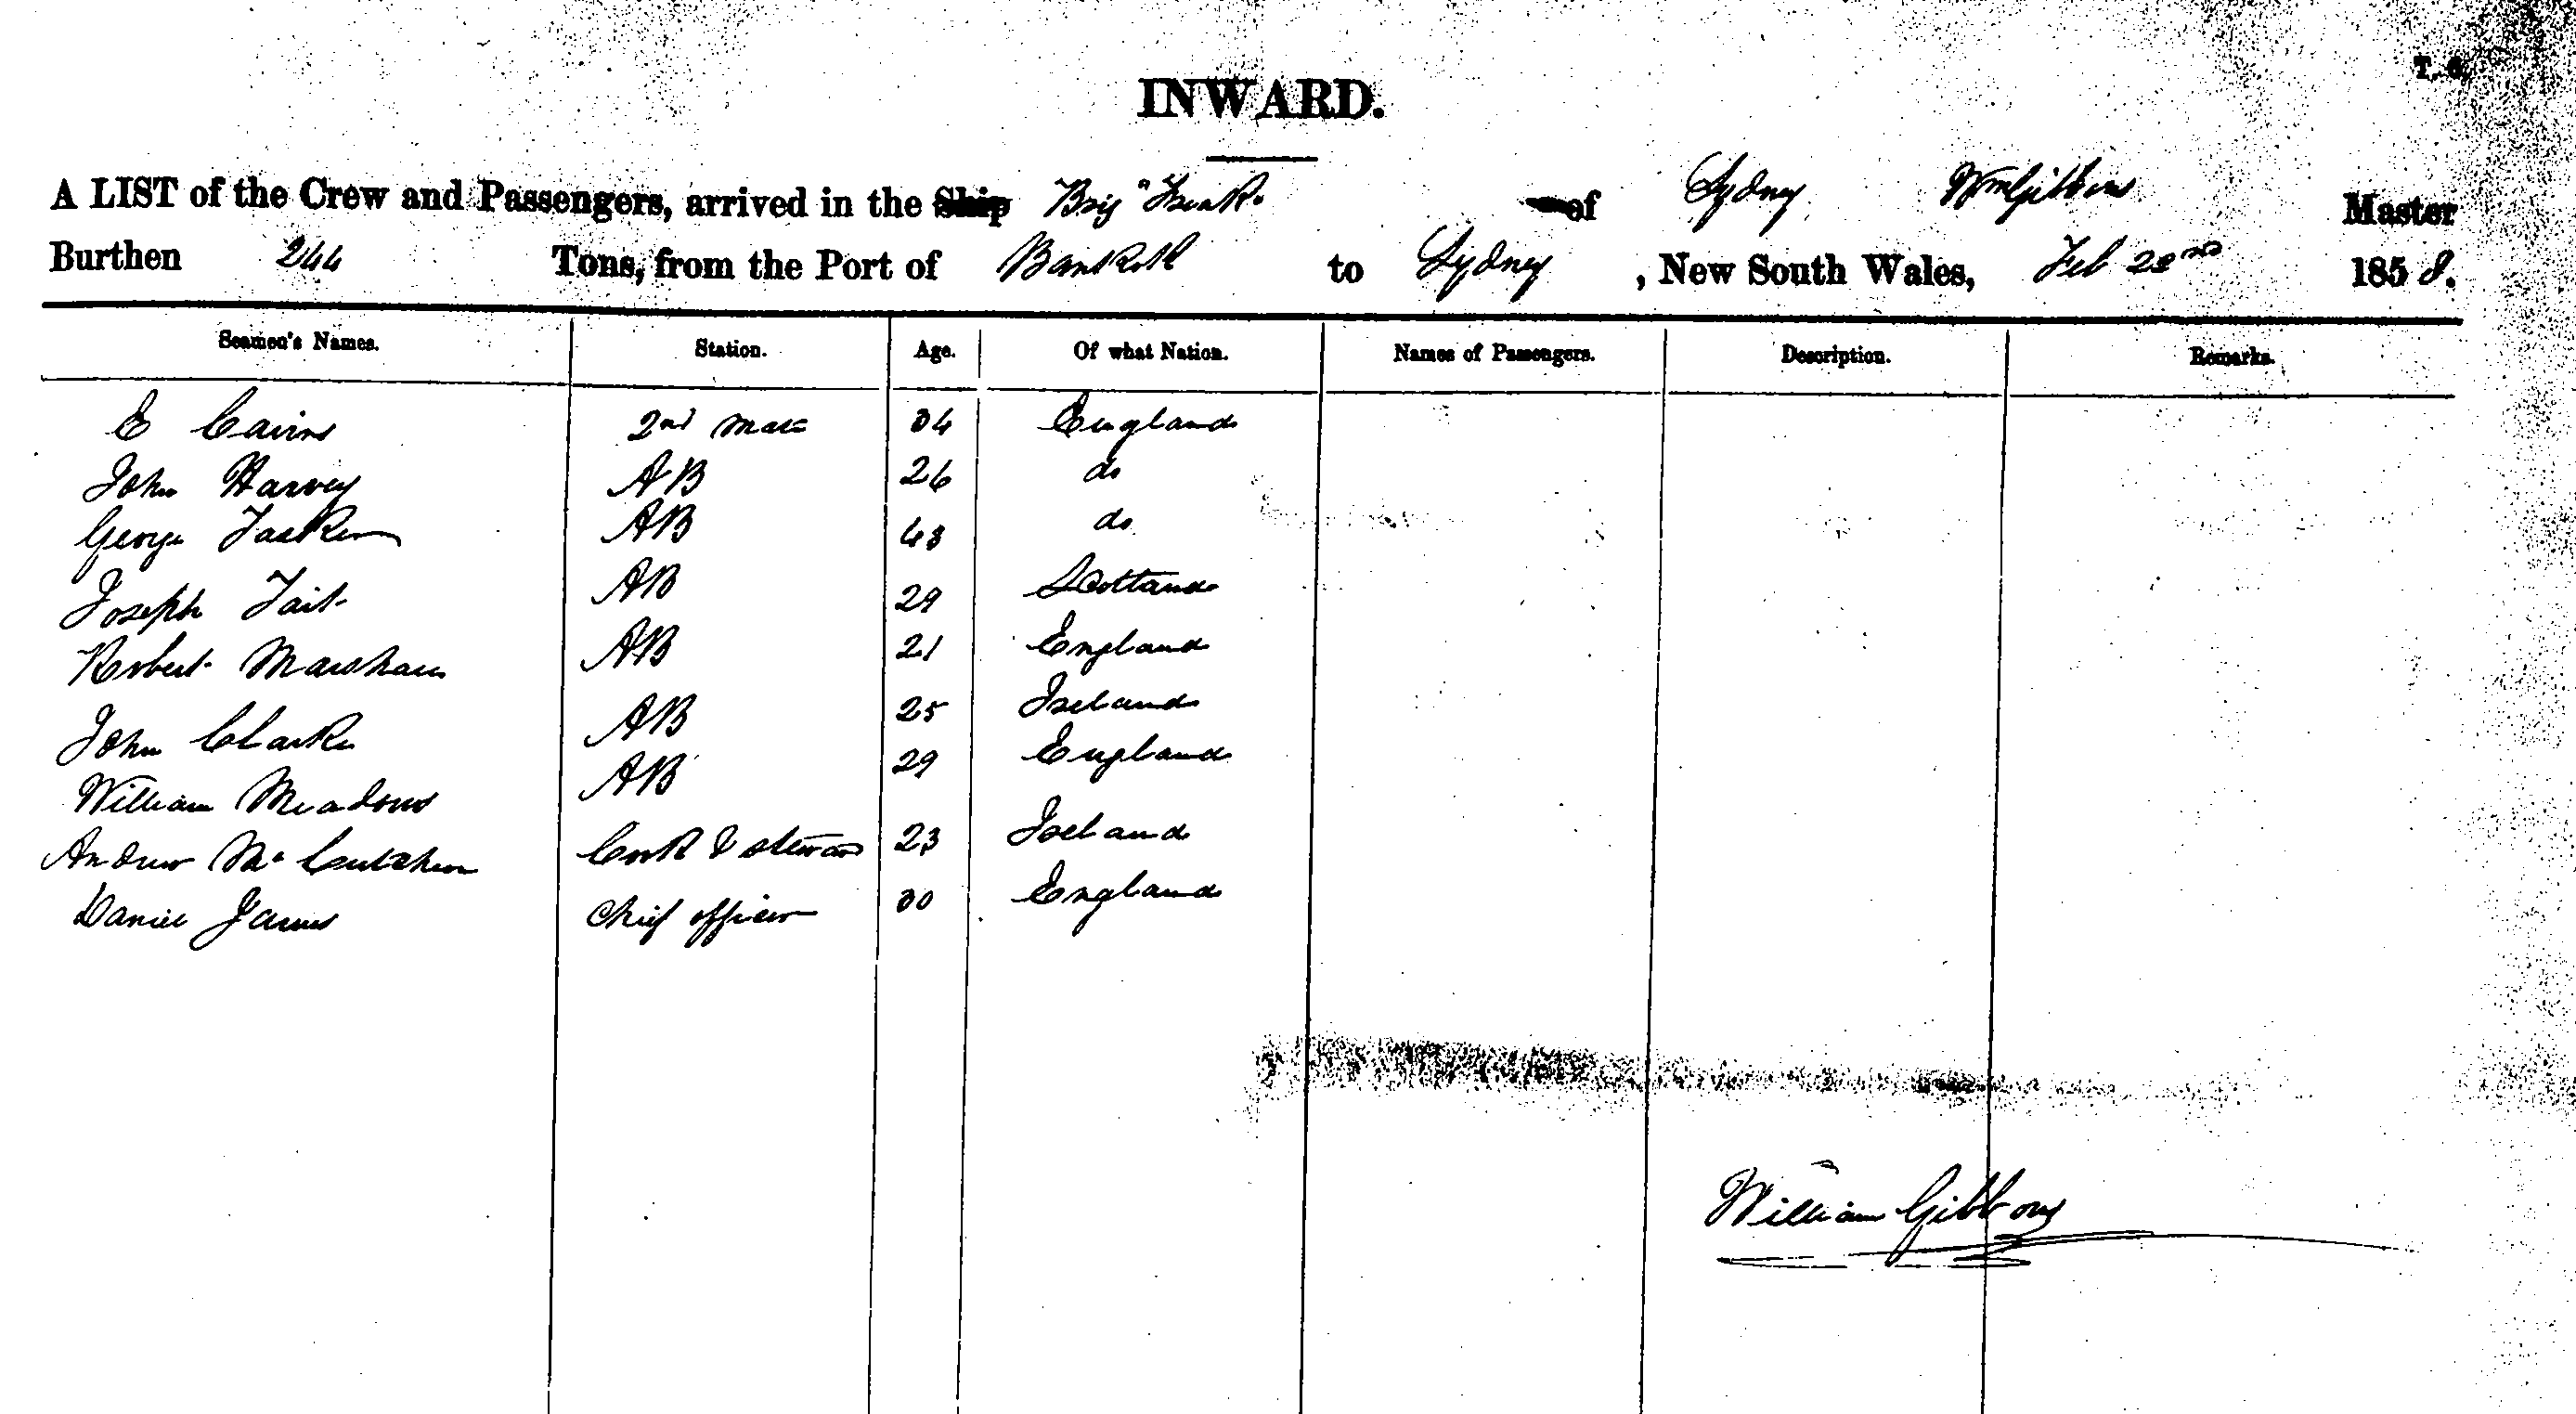 T. 6.
INWARD.
A LIST of the Crew and Passengers, arrived in the Ship Brig "Freak" of Sydney Wm Gibbons Master
Burthen 244 Tons, from the Port of Bankok to Sydney, New South Wales, Feb 22nd 1858.
Seamen's Names. Station. Age. Of what Nation. Names of Passengers. Description. Remarks.
E Cairns 2nd Mate 34 England
John Harvey AB 26 do
George Tasker AB 43 do
Joseph Tait AB 29 Scotland
Robert Marshall AB 21 England
John Clarke AB 25 Ireland
William Meadows AB 29 England
Andrew McCutcheon Cook & steward 23 Ireland
Daniel James Chief officer 30 England
William Gibbons